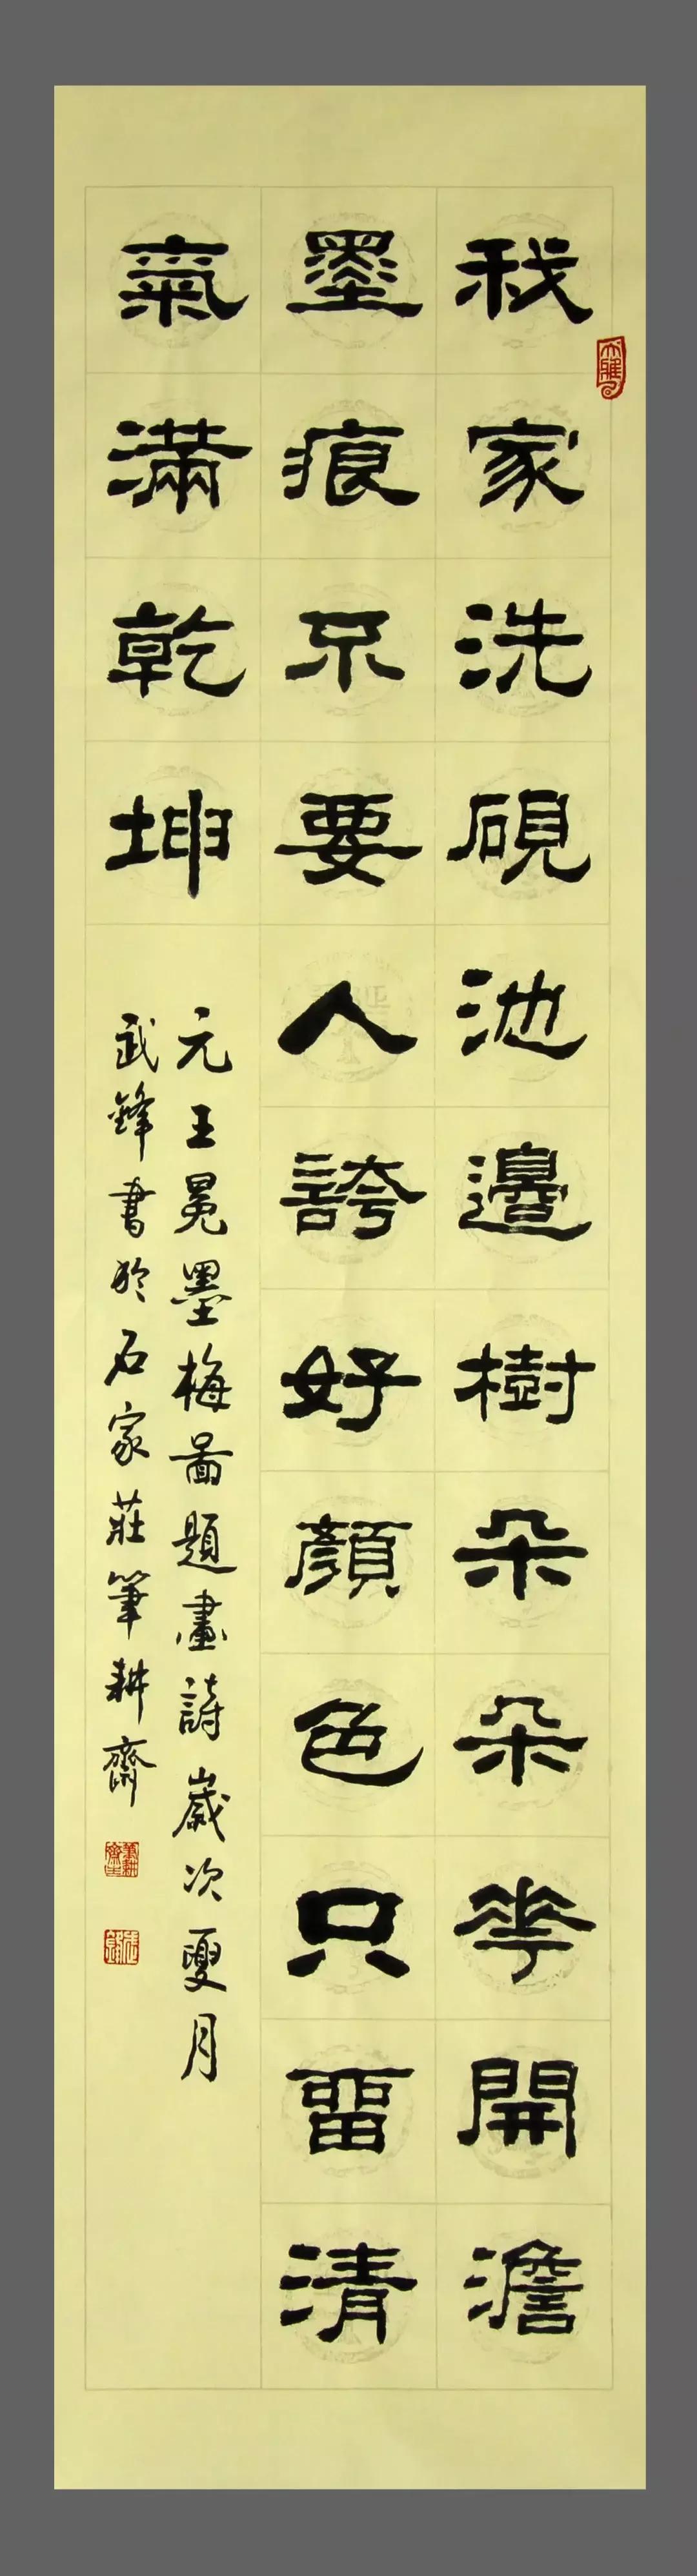 我家洗硯池邊樹朵朵花開澹
墨痕不要人誇好顏色只留清
氣滿乾坤
元王冕墨梅圖題畫詩歲次夏月
武鋒書於石家莊筆耕齋